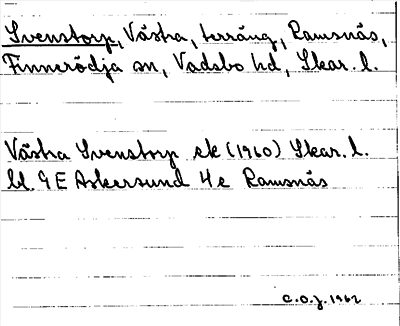 Svenstorp, Västra, terräng, Ramsnäs,
Finnerödja sn, Vadsbo hd, Skar. l.
Västra Svenstorp ek (1960) Skar. l.
bl. 9E Askersund 4e Ramsnäs
C.O.J. 1962